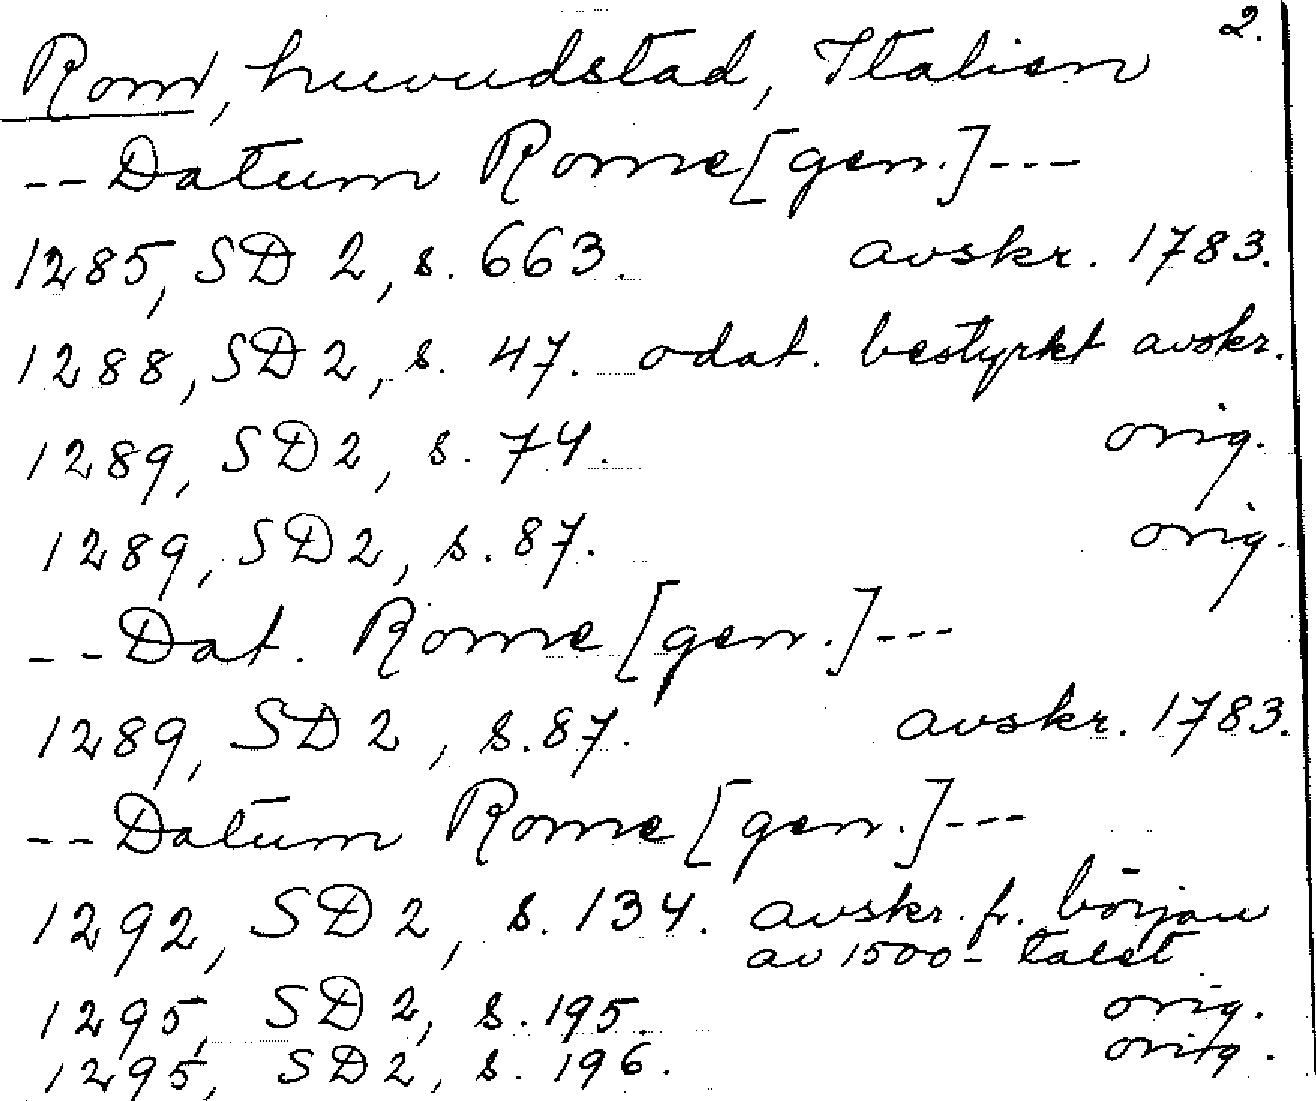 2.
Rom, huvudstad, Italien
--Datum Rome [gen.]---
1285, SD 2, s. 663. avskr. 1783.
1288, SD 2, s. 47. odat. bestyrkt avskr.
1289, SD 2, s. 74. orig.
1289, SD 2, s. 87. orig.
--Dat. Rome [gen.]---
1289, SD 2, s. 87. avskr. 1783.
--Datum Rome [gen.]---
1292, SD 2, s. 134. avskr. fr. början
av 1500-talet
1295, SD 2, s. 195. orig.
1295, SD 2, s. 196. orig.